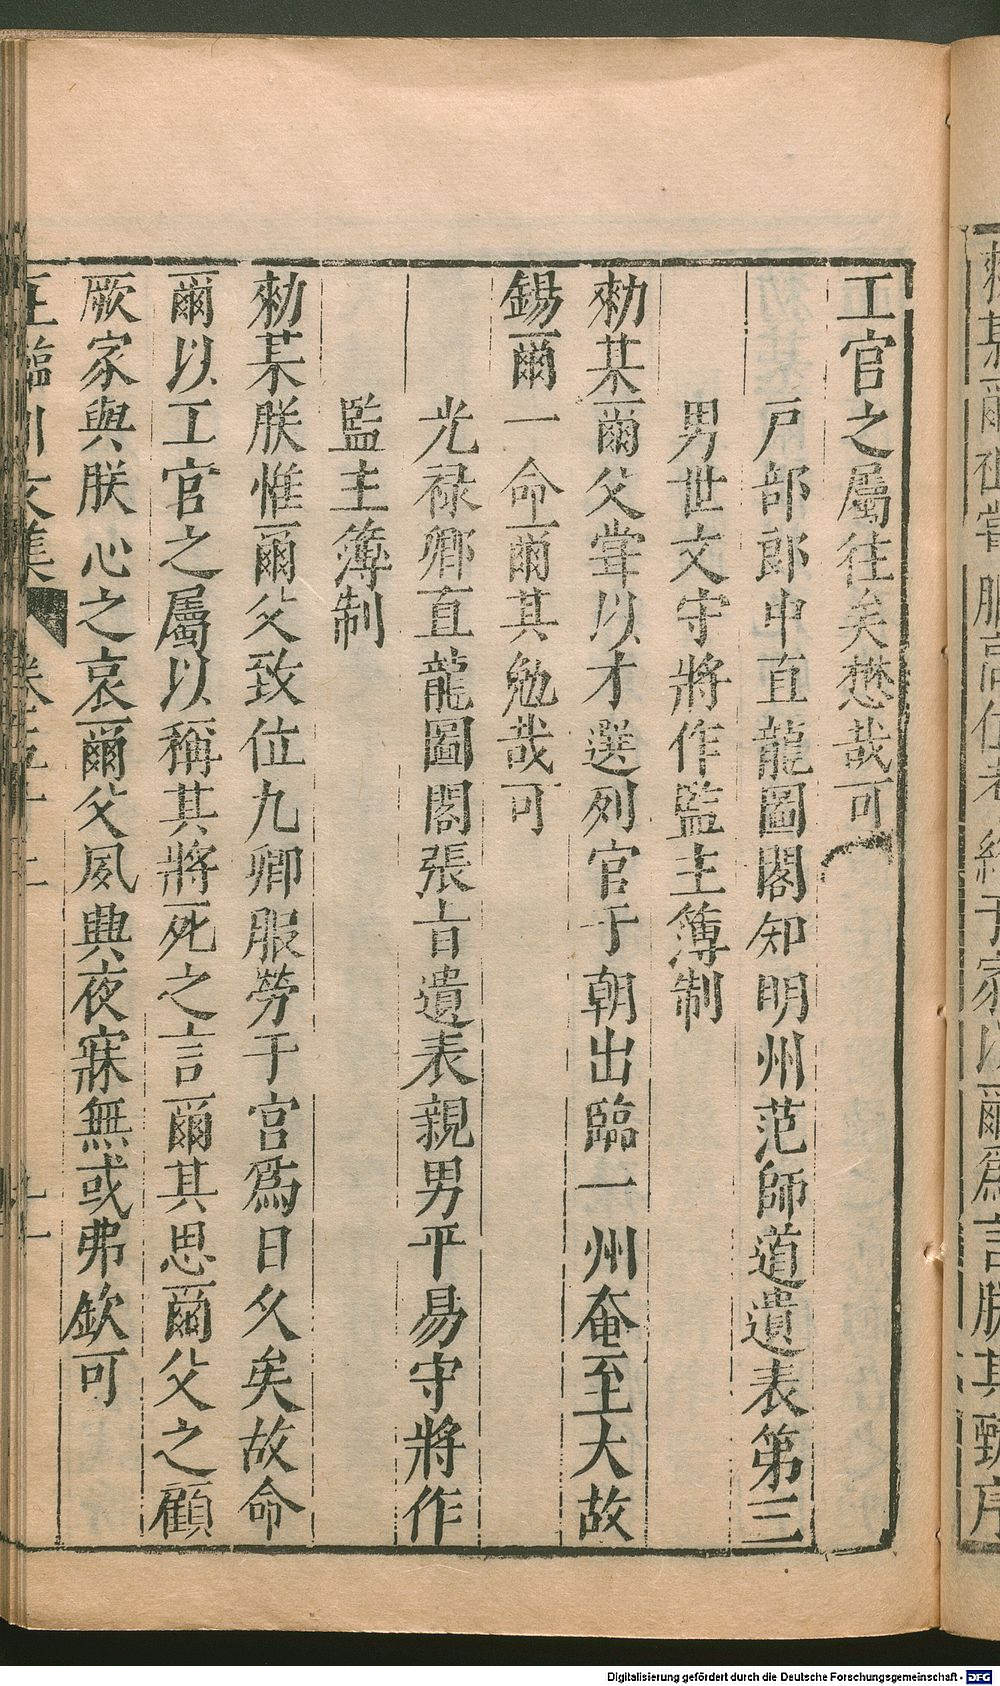 工官之屬往矣懋哉可
戶部郎中直龍圖閣知明州范師道遺表第三
男世文守將作監主簿制
勑某爾父嘗以才選列官于朝出臨一州奄至大故
錫爾一命爾其勉哉可
光祿卿直龍圖閣張旨遺表親男平易守將作
監主簿制
勑某朕惟爾父致位九卿服勞于官爲日久矣故命
爾以工官之屬以稱其將死之言爾其思爾父之顧
厥家與朕心之哀爾父夙興夜寐無或弗欽可
王臨川文集 卷五十二 十一
Digitalisierung gefördert durch die Deutsche Forschungsgemeinschaft - DFG